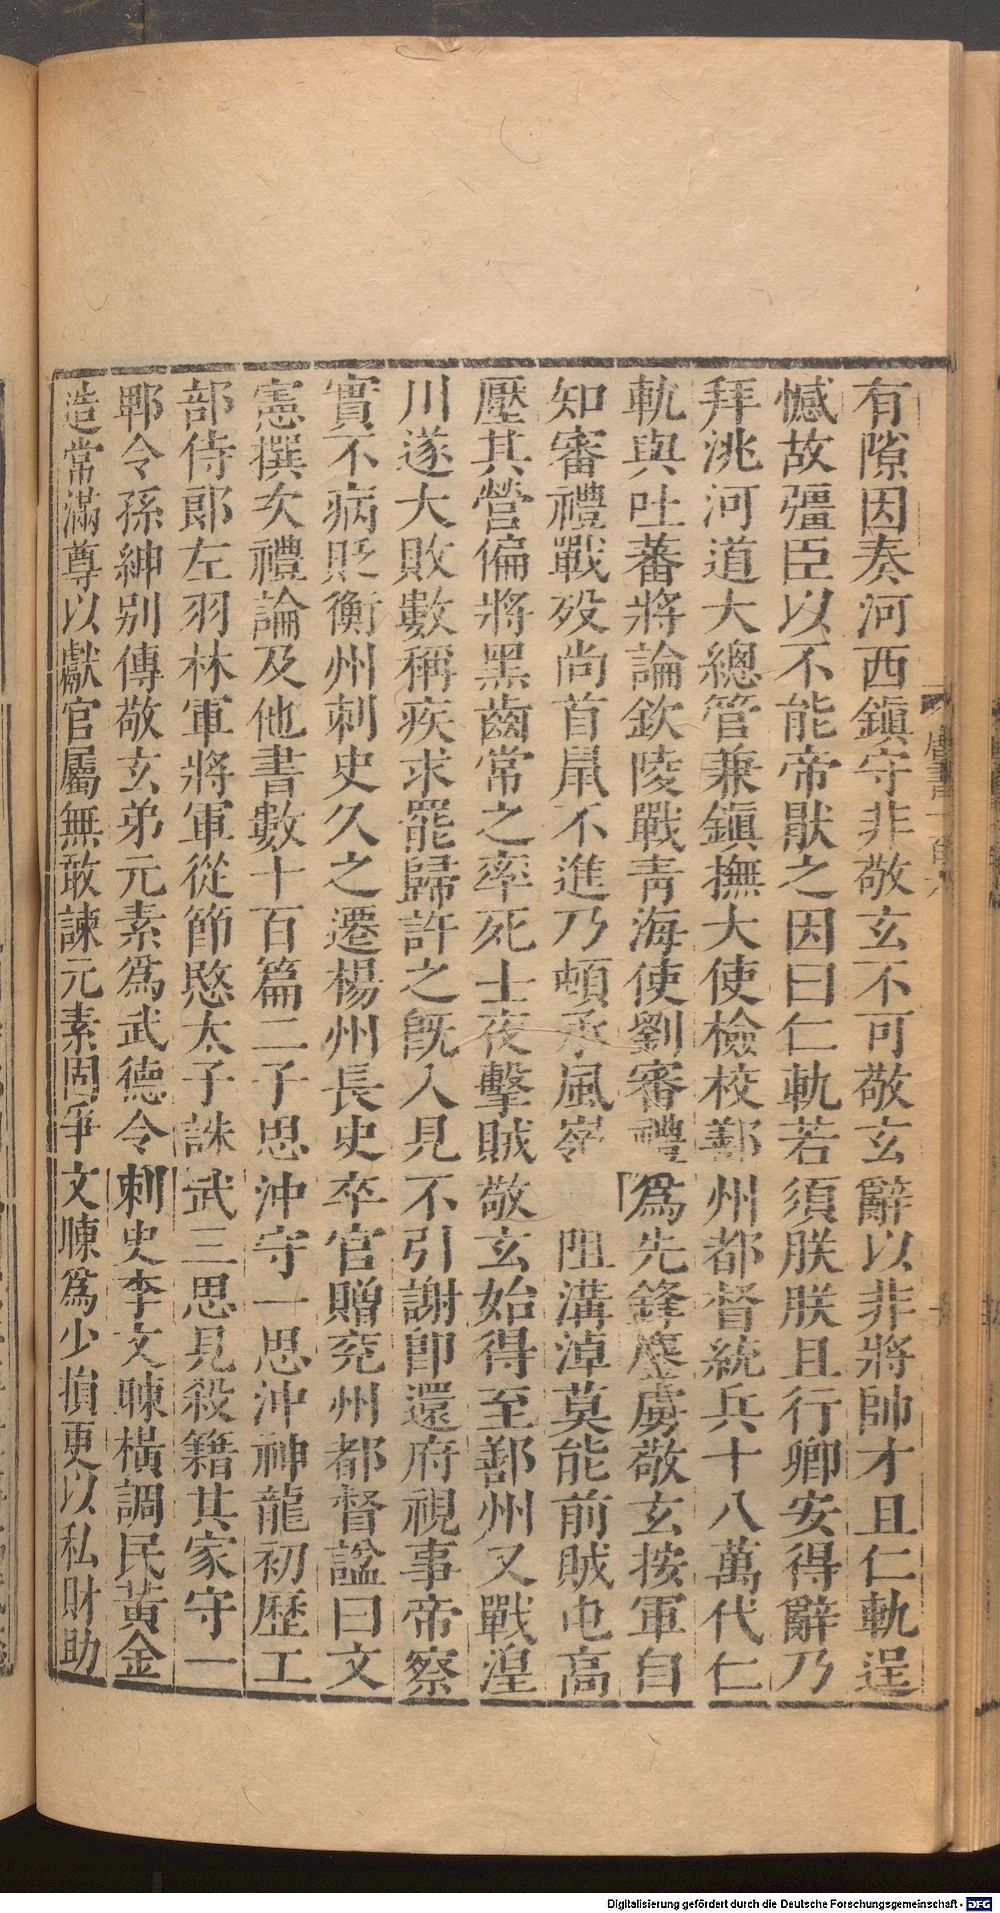 有隙因奏河西鎮守非敬玄不可敬玄辭以非將帥才且仁軌逞
憾故彊臣以不能帝厭之因曰仁軌若須朕朕且行卿安得辭乃
拜洮河道大總管兼鎮撫大使檢校鄯州都督統兵十八萬代仁
軌與吐蕃將論欽陵戰青海使劉審禮爲先鋒鏖虜敬玄按軍自
知審禮戰歿尚首鼠不進乃頓承風嶺阻溝淖莫能前賊屯高
壓其營偏將黑齒常之率死士夜擊賊敬玄始得至鄯州又戰湟
川遂大敗數稱疾求罷歸許之旣入見不引謝卽還府視事帝察
實不病貶衡州刺史久之遷楊州長史卒官贈兖州都督謚曰文
憲撰次禮論及他書數十百篇二子思沖守一思沖神龍初歷工
部侍郎左羽林軍將軍從節愍太子誅武三思見殺籍其家守一
郫令孫紳別傳敬玄弟元素爲武德令刺史李文暕橫調民黃金
造常滿尊以獻官屬無敢諫元素固爭文暕爲少損更以私財助
唐書一百六
Digitalisierung gefördert durch die Deutsche Forschungsgemeinschaft - DFG